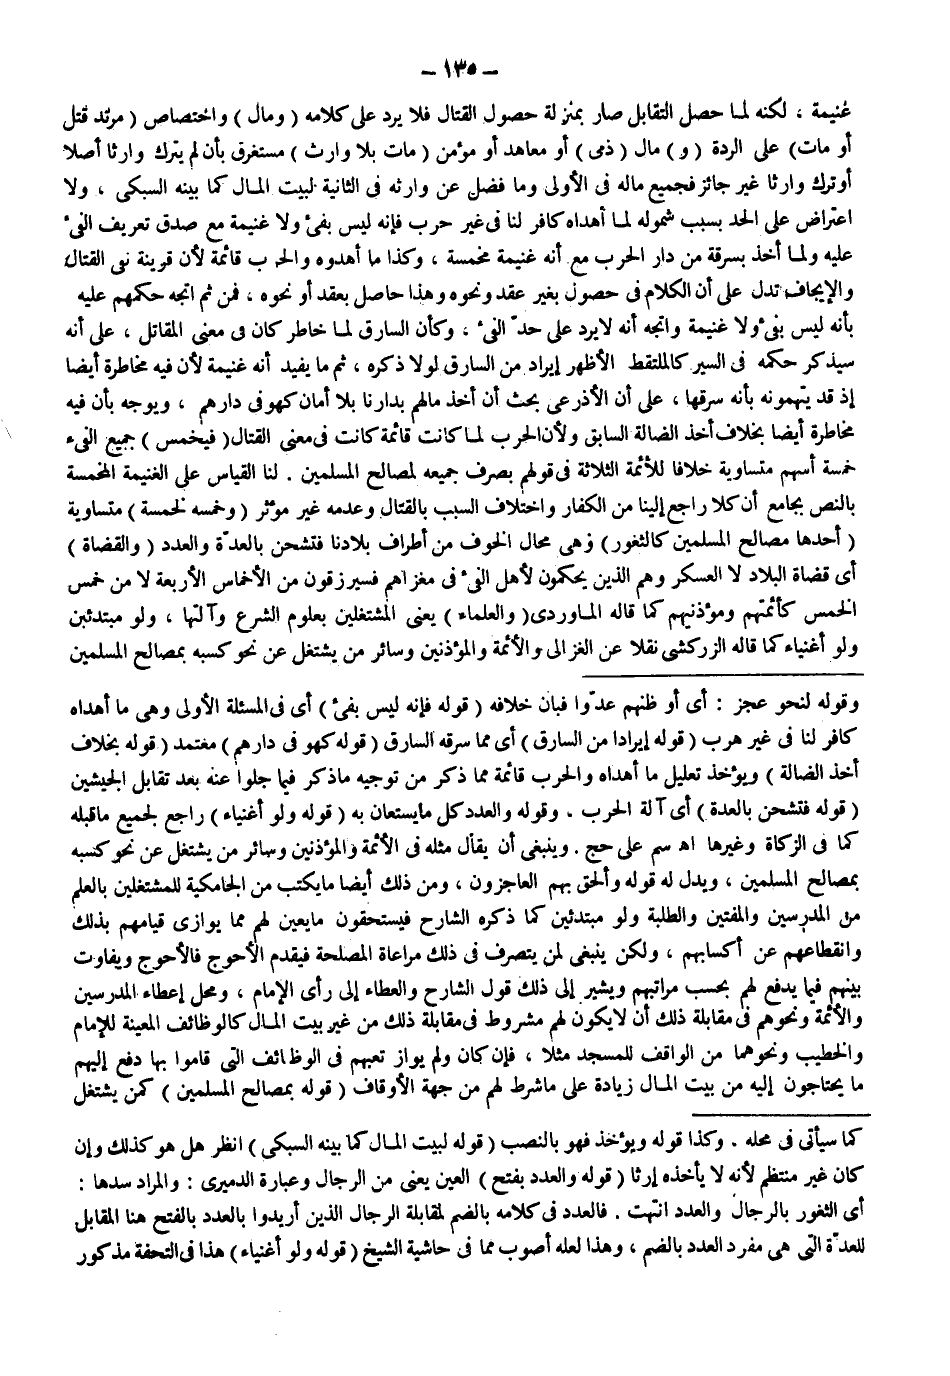 – ١٣٥ –
غنيمة ، لكنه لما حصل التقابل صار بمنزلة حصول القتال فلا يرد على كلامه ( ومال ) واختصاص ( مرتد قتل
أو مات) على الردة ( و ) مال ( ذمى ) أو معاهد أو مؤمن ( مات بلا وارث ) مستغرق بأن لم يترك وارثا أصلا
أوترك وارثا غير جائز فجميع ماله فى الأولى وما فضل عن وارثه فى الثانية لبيت المال كما بينه السبكى ، ولا
اعتراض على الحد بسبب شموله لما أهداه كافر لنا فى غير حرب فإنه ليس بفىء ولا غنيمة مع صدق تعريف الفىء
عليه ولما أخذ بسرقة من دار الحرب مع أنه غنيمة مخمسة ، وكذا ما أهدوه والحرب قائمة لأن قرينة نفى القتال
والإيجاف تدل على أن الكلام فى حصول بغير عقد ونحوه وهذا حاصل بعقد أو نحوه ، فمن ثم اتجه حكمهم عليه
بأنه ليس بفىء ولا غنيمة واتجه أنه لايرد على حدّ الفىء ، وكأن السارق لما خاطر كان فى معنى المقاتل ، على أنه
سيذكر حكمه فى السير كالملتقط الأظهر إيراد من السارق لولا ذكره ، ثم ما يفيد أنه غنيمة لأن فيه مخاطرة أيضا
إذ قد يتهمونه بأنه سرقها ، على أن الأذرعى بحث أن أخذ مالهم بدارنا بلا أمان كهو فى دارهم ، ويوجه بأن فيه
مخاطرة أيضا بخلاف أخذ الضالة السابق ولأن الحرب لما كانت قائمة كانت فى معنى القتال( فيخمس ) جميع الفىء
خمسة أسهم متساوية خلافا للأئمة الثلاثة فى قولهم بصرف جميعه لمصالح المسلمين . لنا القياس على الغنيمة المخمسة
بالنص بجامع أن كلا راجع إلينا من الكفار واختلاف السبب بالقتال وعدمه غير مؤثر ( وخمسه لخمسة ) متساوية
( أحدها مصالح المسلمين كالثغور) وهى محال الخوف من أطراف بلادنا فتشحن بالعدّة والعدد ( والقضاة )
أى قضاة البلاد لا العسكر وهم الذين يحكمون لأهل الفىء فى مغزاهم فسيرزقون من الأخماس الأربعة لا من خمس
الخمس كأئمتهم ومؤذنيهم كما قاله الماوردى( والعلماء ) يعنى المشتغلين بعلوم الشرع وآلتها ، ولو مبتدئين
ولو أغنياء كما قاله الزركشى نقلا عن الغزالى والأئمة والمؤذنين وسائر من يشتغل عن نحو كسبه بمصالح المسلمين
وقوله لنحو عجز : أى أو ظنهم عدوّا فبان خلافه ( قوله فإنه ليس بفىء ) أى فى المسئلة الأولى وهى ما أهداه
كافر لنا فى غير هرب ( قوله إيرادا من السارق ) أى مما سرقه السارق ( قوله كهو فى دارهم ) معتمد ( قوله بخلاف
أخذ الضالة ) ويؤخذ تعليل ما أهداه والحرب قائمة مما ذكر من توجيه ماذكر فيما جلوا عنه بعد تقابل الجيشين
( قوله فتشحن بالعدة ) أى آلة الحرب . وقوله والعدد كل مايستعان به ( قوله ولو أغنياء ) راجع لجميع ماقبله
كما فى الزكاة وغيرها اه سم على حج . وينبغى أن يقال مثله فى الأئمة والمؤذنين وسائر من يشتغل عن نحو كسبه
بمصالح المسلمين ، ويدل له قوله وألحق بهم العاجزون ، ومن ذلك أيضا مايكتب من الجامكية للمشتغلين بالعلم
من المدرسين والمفتين والطلبة ولو مبتدئين كما ذكره الشارح فيستحقون مايعين لهم مما يوازى قيامهم بذلك
وانقطاعهم عن أكسابهم ، ولكن ينبغى لمن يتصرف فى ذلك مراعاة المصلحة فيقدم الأحوج فالأحوج ويفاوت
بينهم فيما يدفع لهم بحسب مراتبهم ويشير إلى ذلك قول الشارح والعطاء إلى رأى الإمام ، ومحل إعطاء المدرسين
والأئمة ونحوهم فى مقابلة ذلك أن لايكون لهم مشروط فى مقابلة ذلك من غير بيت المال كالوظائف المعينة للإمام
والخطيب ونحوهما من الواقف للمسجد مثلا ، فإن كان ولم يواز تعبهم فى الوظائف التى قاموا بها دفع إليهم
ما يحتاجون إليه من بيت المال زيادة على ماشرط لهم من جهة الأوقاف ( قوله بمصالح المسلمين ) كمن يشتغل
كما سيأتى فى محله . وكذا قوله ويؤخذ فهو بالنصب ( قوله لبيت المال كما بينه السبكى ) انظر هل هو كذلك وإن
كان غير منتظم لأنه لا يأخذه إرثا ( قوله والعدد بفتح ) العين يعنى من الرجال وعبارة الدميرى : والمراد سدها :
أى الثغور بالرجال والعدد انتهت . فالعدد فى كلامه بالضم لمقابلة الرجال الذين أريدوا بالعدد بالفتح هنا المقابل
للعدّة التى هى مفرد العدد بالضم ، وهذا لعله أصوب مما فى حاشية الشيخ ( قوله ولو أغنياء ) هذا فى التحفة مذكور